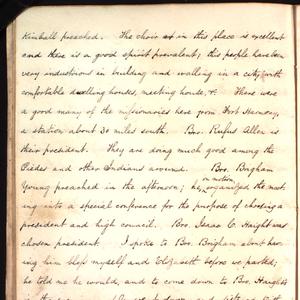 Kimball preached. The choir in this place is excellent
and there is a good spirit prevalent; this people have been
very industrious in building and walling in a city with
comfortable dwelling houses, meeting house, &. There were
a good many of the missionaries here from Fort Harmony,
a station about 30 miles south. Bro. Rufus Allen is
their president. They are doing much good among the
Piedes and other Indians around. Bro. Brigham
Young preached in the afternoon; he on motion organized the meet-
ing into a special conference for the purpose of choosing a
president and high council. Bro. Isaac C. Haight was
chosen president. I spoke to Bro. Brigham about hav-
ing him bless myself and Elizabeth before we parted;
he told me he would, and to come down to Bro. Haight's